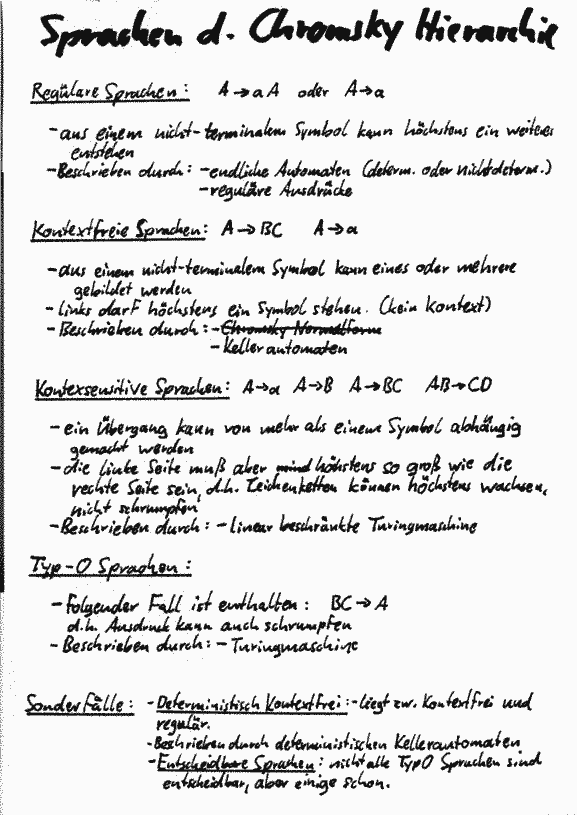 Sprachen d. Chromsky Hierarchie
Regüläre Sprachen: A → aA oder A → a
- aus einem nicht-terminalem Symbol kann höchstens ein weiteres
entstehen
- Beschrieben durch: - endliche Automaten (determ. oder nichtdeterm.)
- reguläre Ausdrücke
Kontextfreie Sprachen: A → BC A → a
- aus einem nicht-terminalem Symbol kann eines oder mehrere
gebildet werden
- links darf höchstens ein Symbol stehen. (kein Kontext)
- Beschrieben durch: - Chromsky Normalform
- Kellerautomaten
Kontexsensitive Sprachen: A → a A → B A → BC AB → CD
- ein Übergang kann von mehr als einem Symbol abhängig
gemacht werden
- die linke Seite muß aber mind höchstens so groß wie die
rechte Seite sein, d.h. Zeichenketten können höchstens wachsen,
nicht schrumpfen
- Beschrieben durch: - linear beschränkte Turingmaschine
Typ-0 Sprachen:
- folgender Fall ist enthalten: BC → A
d.h. Ausdruck kann auch schrumpfen
- Beschrieben durch: - Turingmaschine
Sonderfälle: - Deterministisch Kontextfrei: - liegt zw. Kontextfrei und
regulär.
- Beschrieben durch deterministischen Kellerautomaten
- Entscheidbare Sprachen: nicht alle Typ0 Sprachen sind
entscheidbar, aber einige schon.